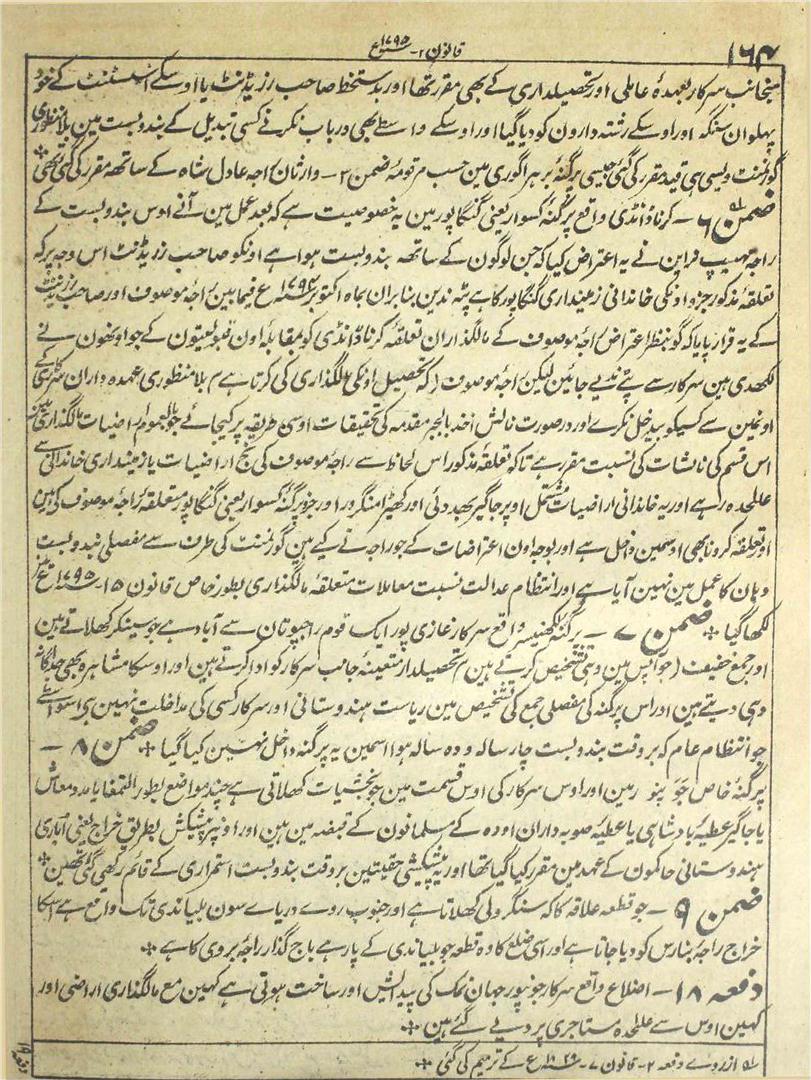 قانون ۲- ۱۷۹۵ع
۱۶۴
منجانب سرکار بعہدۂ عاملی اور تحصیلداری کے بھی مقرر تھا اور بدستخط صاحب رزیڈنٹ یا اوسکے اسسٹنٹ کے خود
پہلوان سنگہ اور اوسکے رشتہ دارون کو دیا گیا اور اوسکے واسطے بھی درباب نکرنے کسی تبدیل کے بندوبست مین بلا منظوری
گورنمنٹ ویسی ہی قید مقرر کی گئی جیسی پرگنۂ بر ہر اگوری مین حسب مرقومۂ ضمن ۲- وارثان راجہ عادل شاہ کے ساتھہ مقرر کی گئی تھی *
ضمن ۶ - کرنا ڈانڈی واقع پرگنۂ کسوار یعنی گنگاپور مین یہ خصوصیت ہے کہ بعد عمل مین آنے اوس بندوبست کے
راجہ مہیپ نراین نے یہ اعتراض کیا کہ جن لوگون کے ساتھہ بندوبست ہوا ہے اونکو صاحب رزیڈنٹ اس وجہ پر کہ
تعلقۂ مذکور جزو اونکی خاندانی زمینداری گنگاپور کا ہے پٹہ ندین بنابران بماہ اکتوبر ع فیمابین راجۂ موصوف اور صاحب رزیڈنٹ
کے یہ قرار پایا کہ گو بنظر اعتراض راجۂ موصوف کے مالگذاران تعلقۂ کرنا ڈانڈی کو بمقابلۂ اون قبولیتون کے جو اونھون نے
لکھدی مین سرکار سے پٹے ندیے جائین لیکن راجۂ موصوف (کہ تحصیل اونکی مالگذاری کی کرتا ہے) بلا منظوری عہدہ داران سرکاری کے
اونمین سے کسیکو بیدخل نکرے اور درصورت نالش اخذ بالجبر مقدمہ کی تحقیقات اوسی طریقہ پر کیجائے جو بالعموم اراضیات مالگذاری مین
اس قسم کی نالشات کی نسبت مقرر ہے تاکہ تعلقۂ مذکور اس لحاظ سے راجۂ موصوف کی اراضیات یا زمینداری خاندانی سے
علٰحدہ رہے اور یہ خاندانی اراضیات مشتمل اوپر جاگیر بھدوئی اور کھیڑا منگرور اور جزو پرگنۂ کسوار یعنی گنگاپور متعلقۂ راجۂ موصوف کی ہین
اور تعلقۂ کرونا بھی اوسمین داخل ہے اور بوجہ اون اعتراضات کے جو راجہ نے کیے ہین گورنمنٹ کی طرف سے مفصلی بندوبست
وہان کا عمل مین نہین آیا ہے اور انتظام عدالت نسبت معاملات متعلقۂ مالگذاری بطور خاص قانون ۱۵- ۱۷۹۵ع مین
لکھا گیا * ضمن ۷ - پرگنۂ لکھنیسر واقع سرکار غازی پور ایک قوم راجپوتان سے آباد ہے جو سینگر کھلاتے ہین
اور جمع خفیف (جو آپس مین وہی تشخیص کرتے ہین) تحصیلدار متعینۂ جانب سرکار کو ادا کرتے ہین اور اوسکا مشاہرہ بھی جداگانہ
وہی دیتے ہین اور اس پرگنہ کی مفصلی جمع کی تشخیص مین ریاست ہندوستانی اور سرکار کسی کی مداخلت نہین ہے اسواسطے
جو انتظام عام کہ بروقت بندوبست چار سالہ و دہ سالہ ہوا اسمین یہ پرگنہ داخل نہین کیا گیا * ضمن ۸ -
پرگنۂ خاص جونپور مین اور اوس سرکار کی اوس قسمت مین جو بخشیات کھلاتی ہے چند مواضع بطور التمغا یا مدد معاش
یا جاگیر عطیۂ بادشاہی یا عطیۂ صوبہ داران اودہ کے مسلمانون کے قبضہ مین ہین اور اونپر پیشکش بطریق خراج یعنی آبداری
ہندوستانی حاکمون کے عہد مین مقرر کیا گیا تھا اور یہ پیشکشی حقیتین بروقت بندوبست استمراری کے قائم رکھی گئی تھین *
ضمن ۹ - جو قطعہ علاقہ کا کہ سنگرولی کھلاتا ہے اور جنوب روے دریاے سون بلیاندی تک واقع ہے اسکا
خراج راجۂ بنارس کو دیا جاتا ہے اور اسی ضلع کا وہ قطعہ جو بلیاندی کے پار ہے باج گذار راجۂ بروی کا ہے *
دفعہ ۱۸ - اضلاع واقع سرکار جونپور جہان نمک کی پیدایش اور ساخت ہوتی ہے کہین مع مالگذاری اراضی اور
کہین اوس سے علٰحدہ مستاجری پر دیے گئے ہین *
از روے دفعہ ۲- قانون ۷- ع کے ترمیم کی گئی *
دفعہ ۱۹